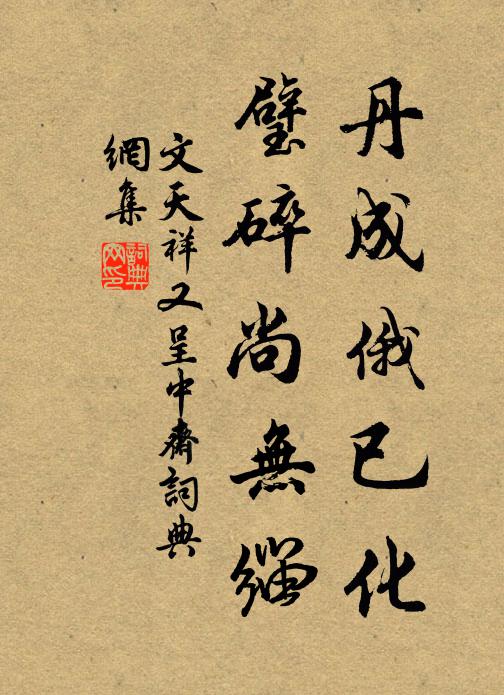 丹成俄已化
璧碎尚無緇
文天祥又呈中齋詞典
網集
詞典
网印